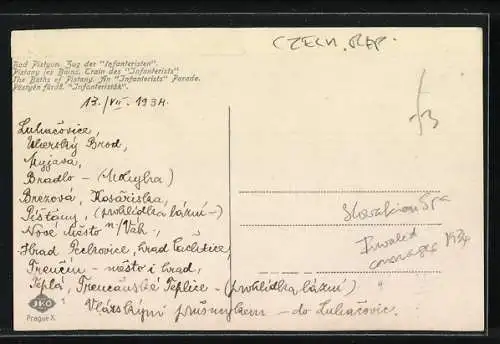 CZECH. REP.
Bad Pistyan. Zug der "Infanteristen".
Pistany les Bains. Train des "Infanterists"
The Baths of Pistany. An "Infanterists" Parade.
Pöstyén fürdő. "Infanteristák".
13./VII. 1934.
Luhačovice,
Uherský Brod,
Myjava,
Bradlo – (Mohyla)
Brezová, Košariska,
Pišťany, (prohlídka lázní –)
Nové Město n/Váh.,
Hrad Beckov, hrad Čachtice,
Trenčín – město i hrad,
Teplá, Trenčanské Teplice – (prohlídka lázní)
Vlárským průsmykem – do Luhačovic.
Slovakian Spa
Invalid
carriages 1934
JKO
Prague X.